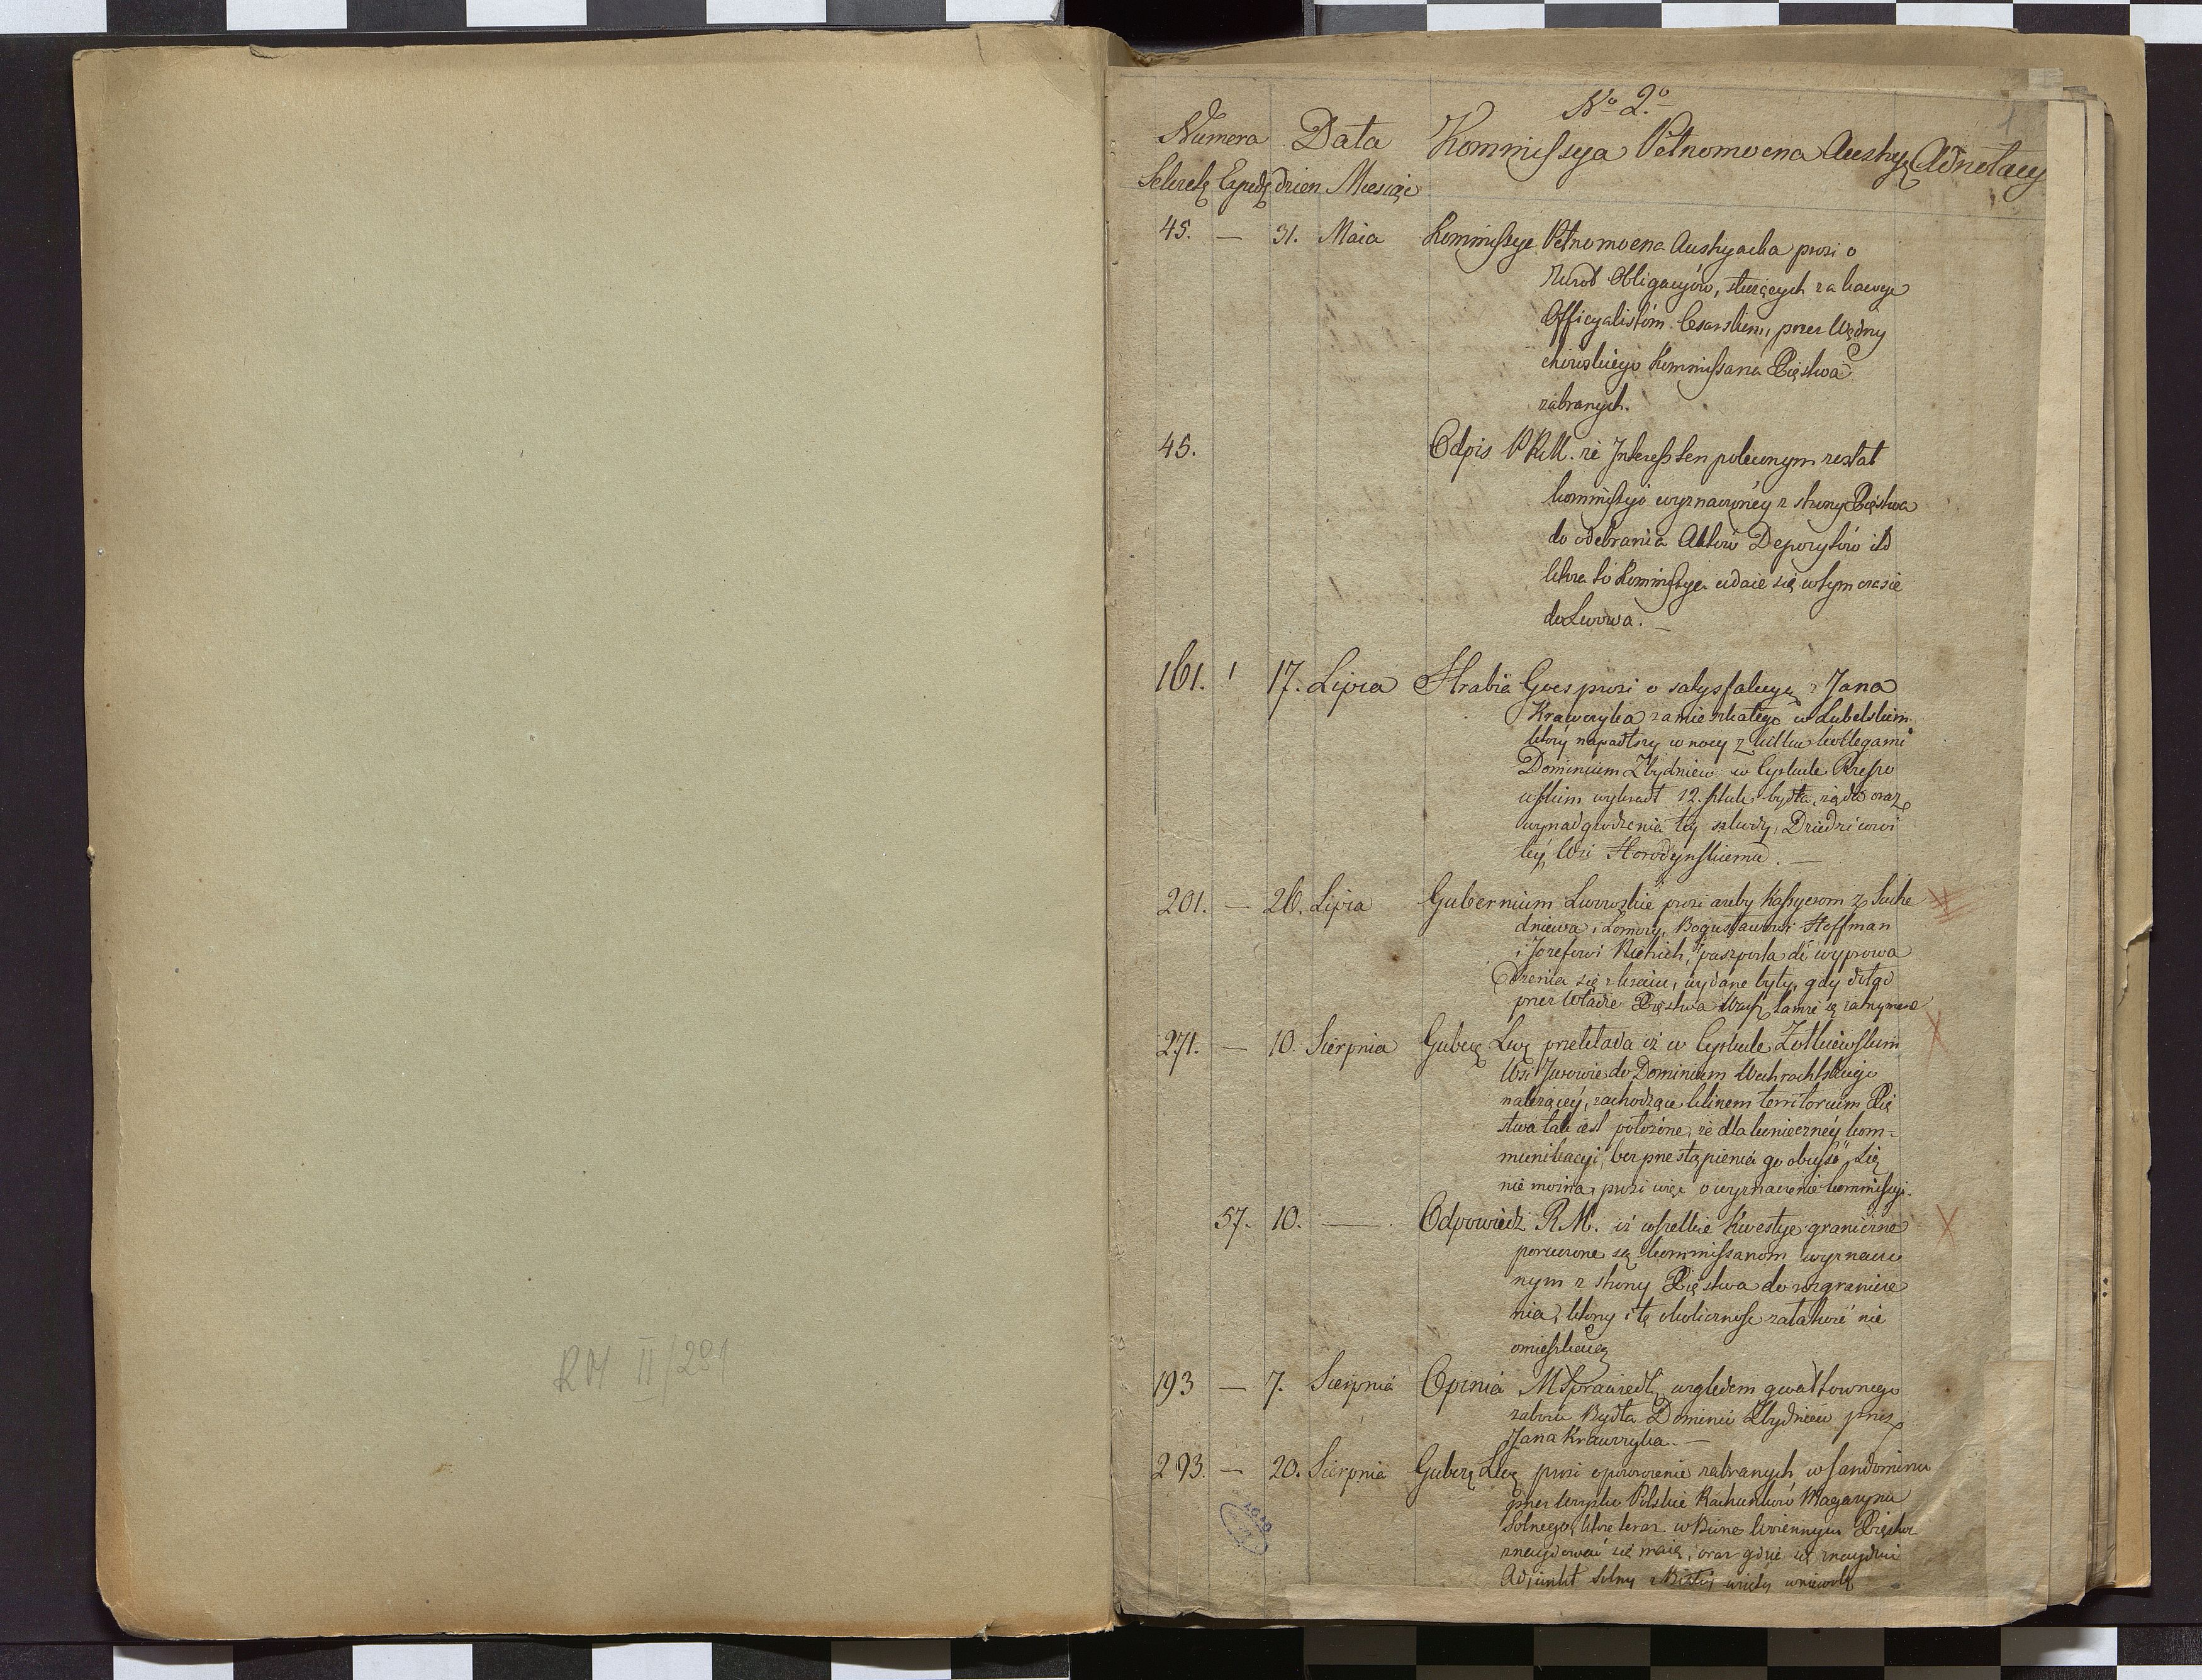 No 2o
1
Numera Data Kommissya Pełnomocna Austrya Adnotacy
Sekretą Exped dzien Miesiąc
45. — 31. Maia Kommissya Pełnomocna Austryacka prosi o
zwrot Obligacyów, służących za kaucye
Officyalistóm Cesarskim, przez Wędry
chowskiego Kommissarza Xięstwa
zabranych.
45. Odpis PRM. że Interess ten poleconym został
kommissyi wyznaczoney z strony Xięstwa
do odebrania Aktów Depozytów itd
która to Kommissya udaie się w tym czasie
do Lwowa. —
161. 1 17. Lipca Hrabia Goes prosi o satysfakcyą z Jana
Krawczyka zamieszkałego w Lubelskim
który napadłszy w nocy z kilku kollegami
Dominium Zbydniew w Cyrkule Rzeszo
wskim wykradł 12. sztuk bydła, żąda oraz
wynadgrodzenia tey szkody, Dziedzicowi
tey Wsi Horodyńskiemu. —
201. — 26. Lipca Gubernium Lwowskie prosi ażeby Kassyerom z Suche
dniewa i Łomży, Bogusławowi Hoffman
i Jozefowi paszporta do wyprowa
dzenia się z kraiu, wydane były, gdy dotąd
przez Władze Xięstwa Warsz tamże są zatrzymane
271. — 10. Sierpnia Guber Lwo przekłada iż w Cyrkule Żołkiewskim
Wsi Jurowie do Dominium
należącey, zachodzące klinem territorium Xię
stwa tak iest położone, że dla konieczney kom=
munikacyi, bez przestąpienia go obeyść się
nie można, prosi więc o wyznaczenie kommissyi.
57. 10. — Odpowiedź RM. iż wszelkie kwestye graniczne
poruczone są kommissarzom wyznaczo
nym z strony Xięstwa do rozgranicze
nia, którzy i tę okoliczność załatwić nie
omieszkaią
193 — 7. Sierpnia Opinia MSprawiedl względem gwałtownego
zaboru Bydła Dominii Zbydniew przez
Jana Krawczyka. —
293. — 20. Sierpnia Guber Lwo prosi o powrocenie zabranych w Sandomirzu
przez woysko Polskie Rachunków Magazynu
Solnego, które teraz w Biurze Woiennym Xięstwa
znaydować się maią, oraz gdzie się znayduie
Adjunkt solny wzięty w niewolą
RM II/291